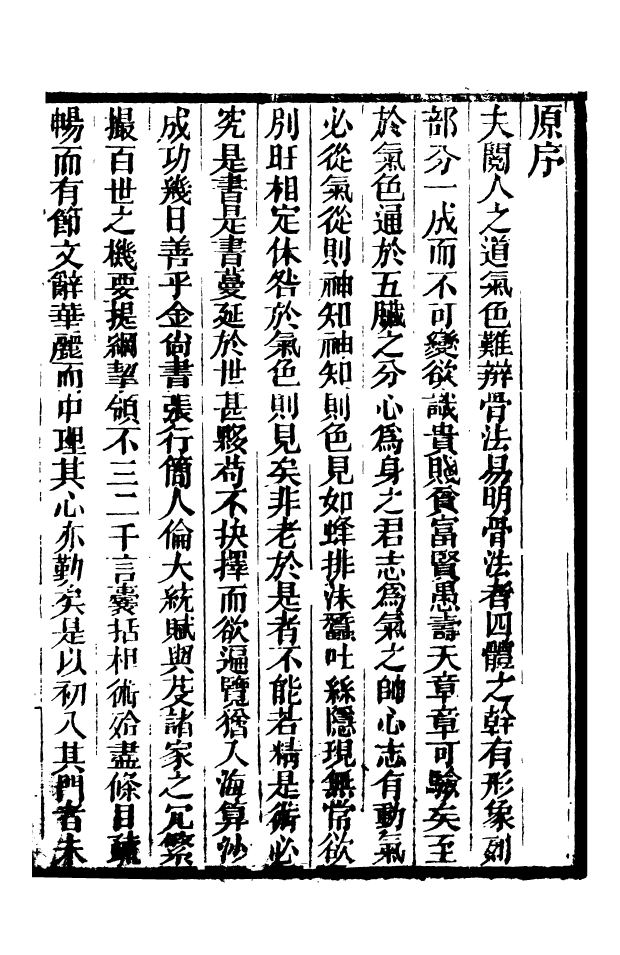 原序
夫閱人之道氣色難辨骨法易明骨法者四體之幹有形象列
部分一成而不可變欲識貴賤貧富賢愚壽夭章章可驗矣至
於氣色通於五臟之分心為身之君志為氣之帥心志有動氣
必從氣從則神知神知則色見如蜂排沬蠶吐絲隱現無常欲
別旺相定休咎於氣色則見矣非老於是者不能若精是術必
究是書是書蔓延於世甚夥苟不抉擇而欲遍覽猶入海算沙
成功幾日善乎金尙書張行簡人倫大統賦與芟諸家之冗繁
撮百世之機要提綱挈領不三二千言囊括相術殆盡條目疏
暢而有節文辭華麗而中理其心亦勤矣是以初入其門者未